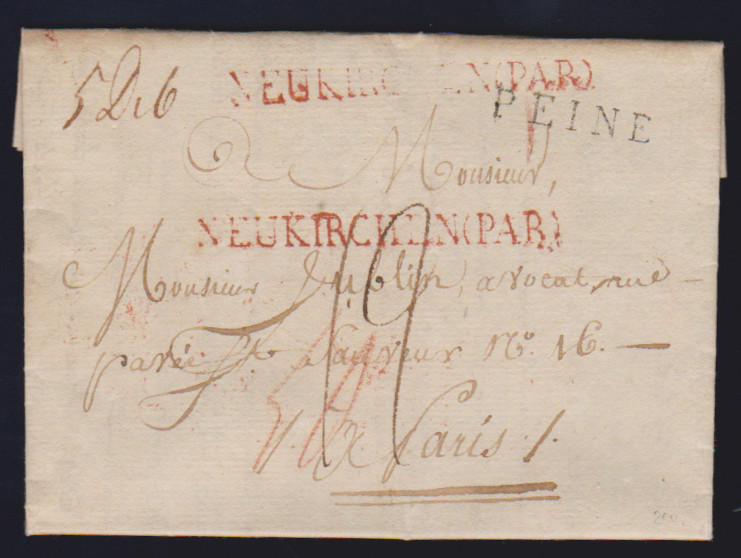 5 De 6
NEUKIRCHEN(PAR)
PEINE
A Monsieur,
NEUKIRCHEN(PAR)
Monsieur Dublin, avocat, rue
pavée St. Sauveur No. 16. —
à Paris ./.